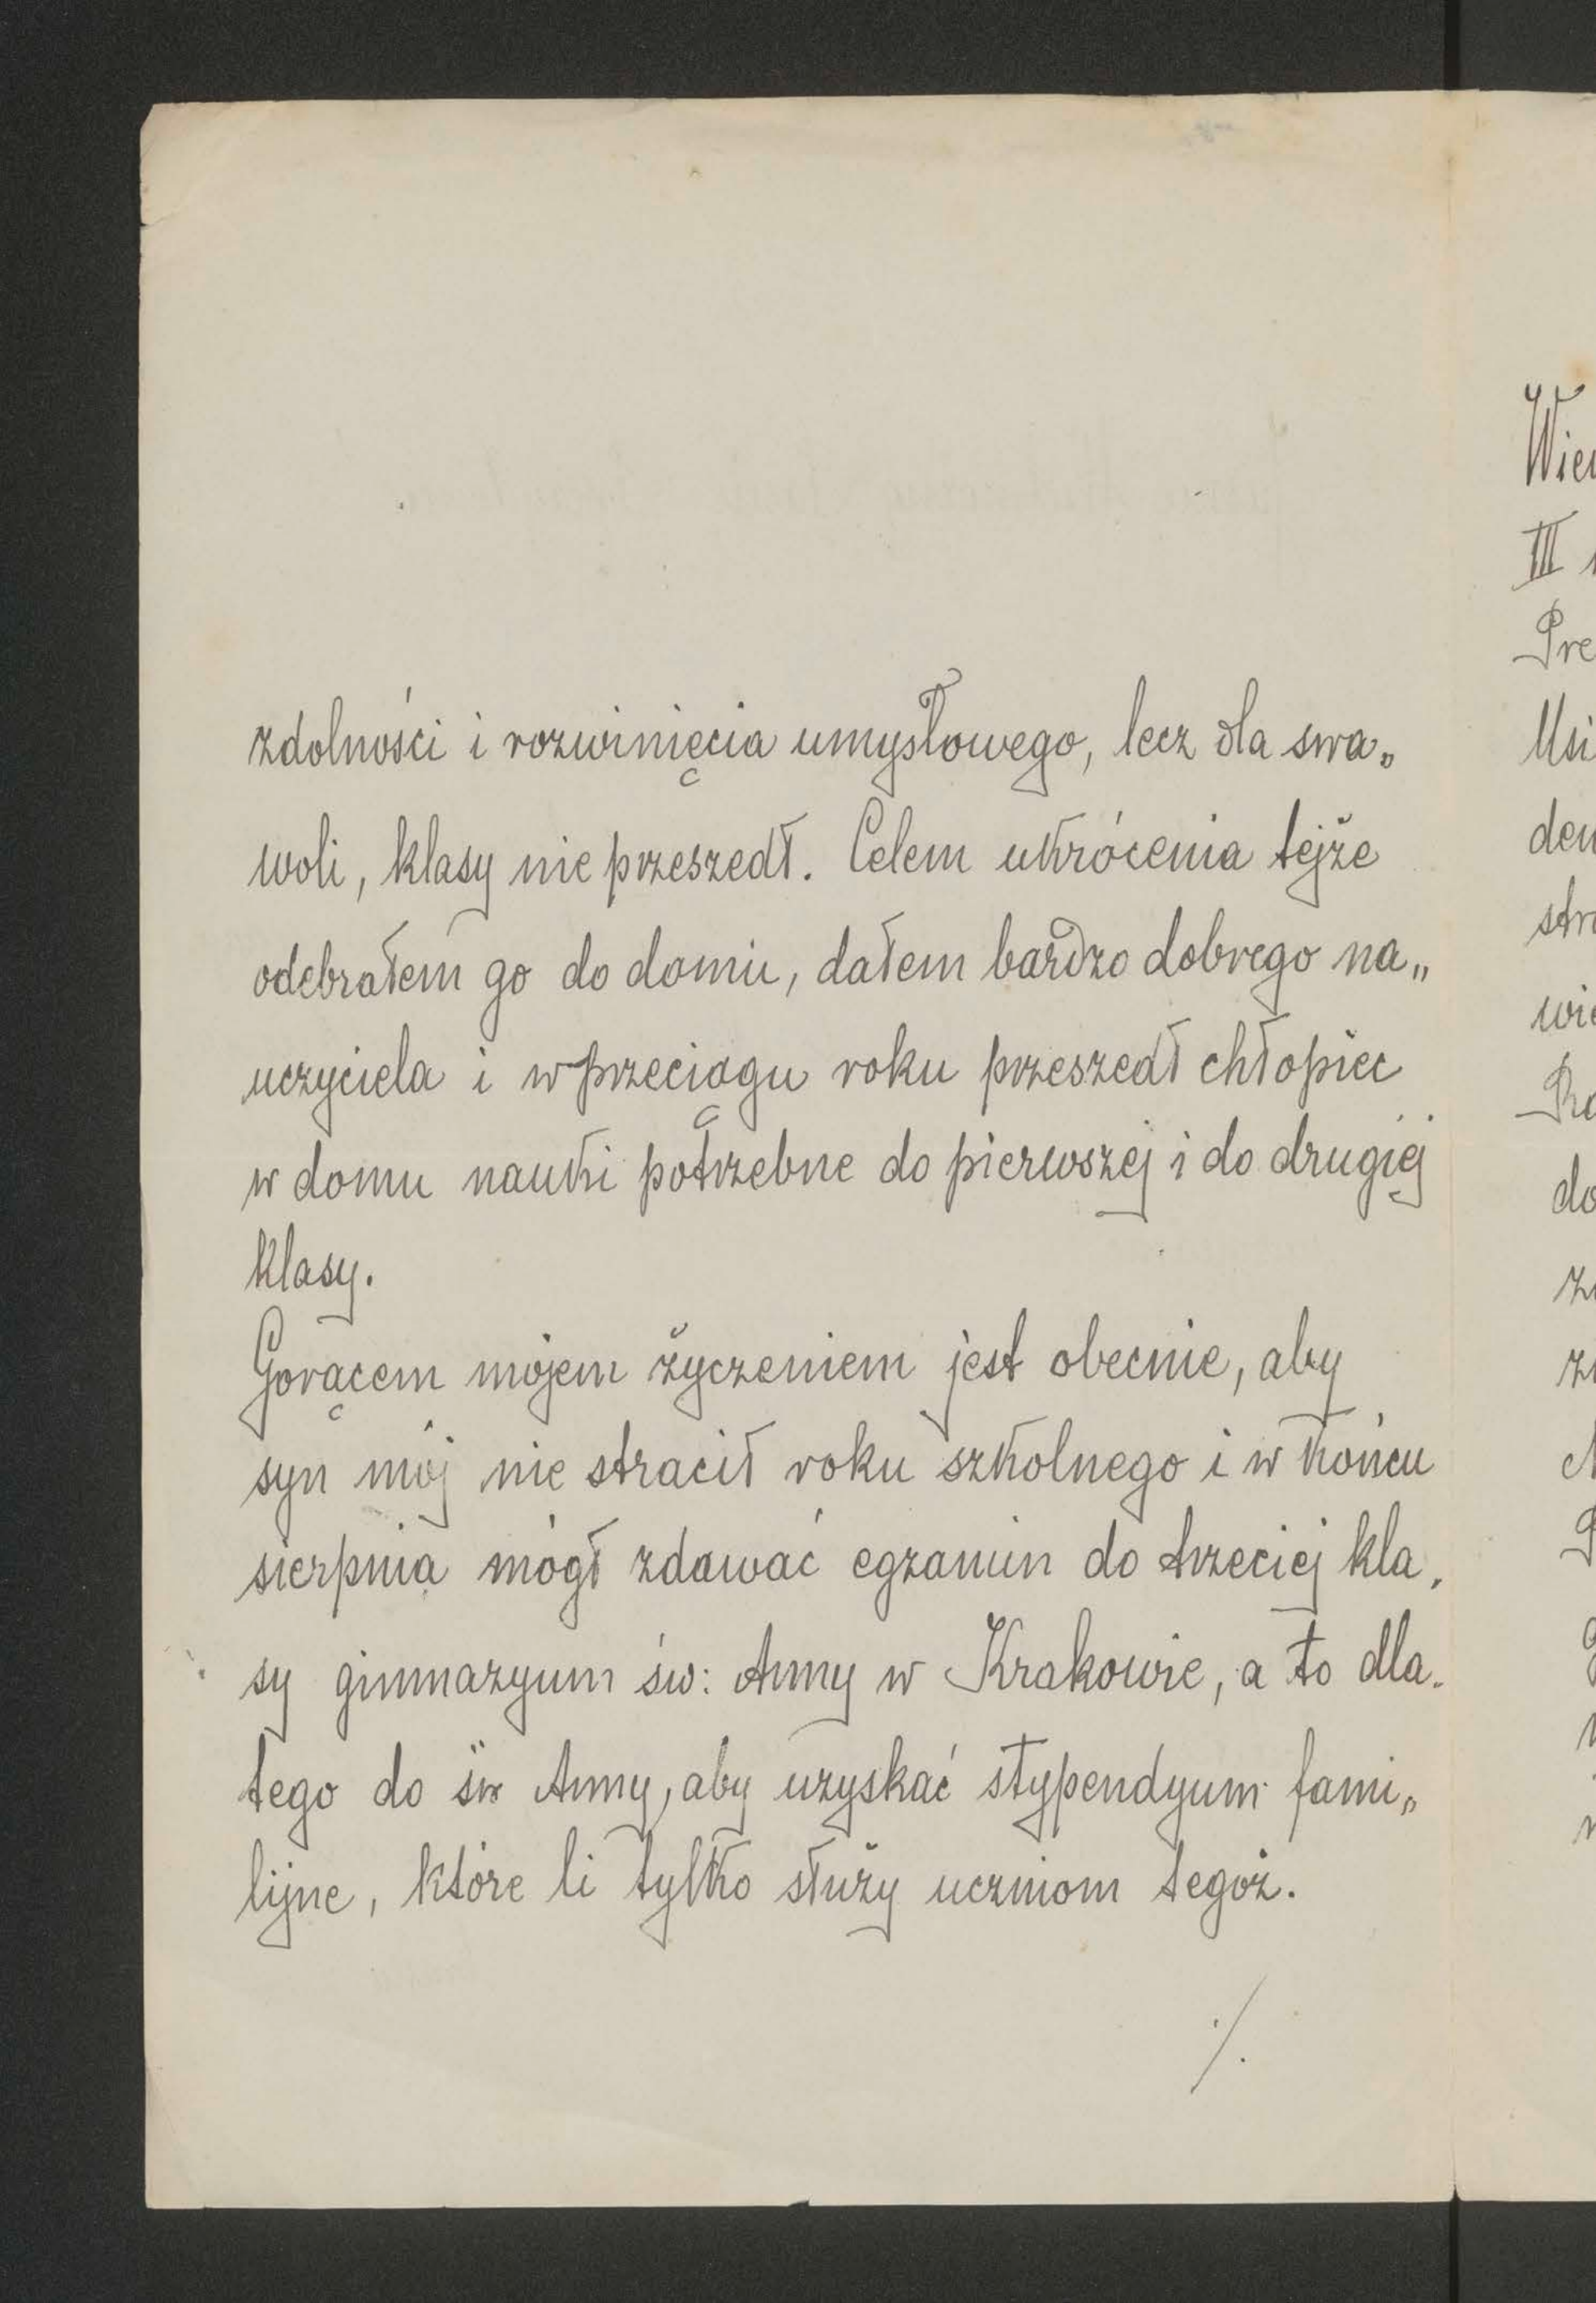 zdolności i rozwinięcia umysłowego, lecz dla swa„
woli, klasy nie przeszedł. Celem ukrócenia tejże
odebrałem go do domu, dałem bardzo dobrego na„
uczyciela i w przeciągu roku przeszedł chłopiec
w domu nauki potrzebne do pierwszej i do drugiej
klasy.
Gorącem mojem życzeniem jest obecnie, aby
syn mój nie stracił roku szkolnego i w końcu
sierpnia mógł zdawać egzamin do trzeciej kla,
sy gimnazyum św: Anny w Krakowie, a to dla.
tego do św Anny, aby uzyskać stypendyum fami„
lijne, które li tylko służy uczniom tegoż.
./.
III